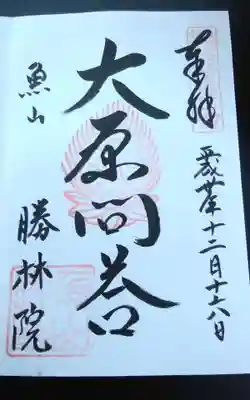 奉拝
平成卅年十二月十六日
大原問答
魚山
勝林院